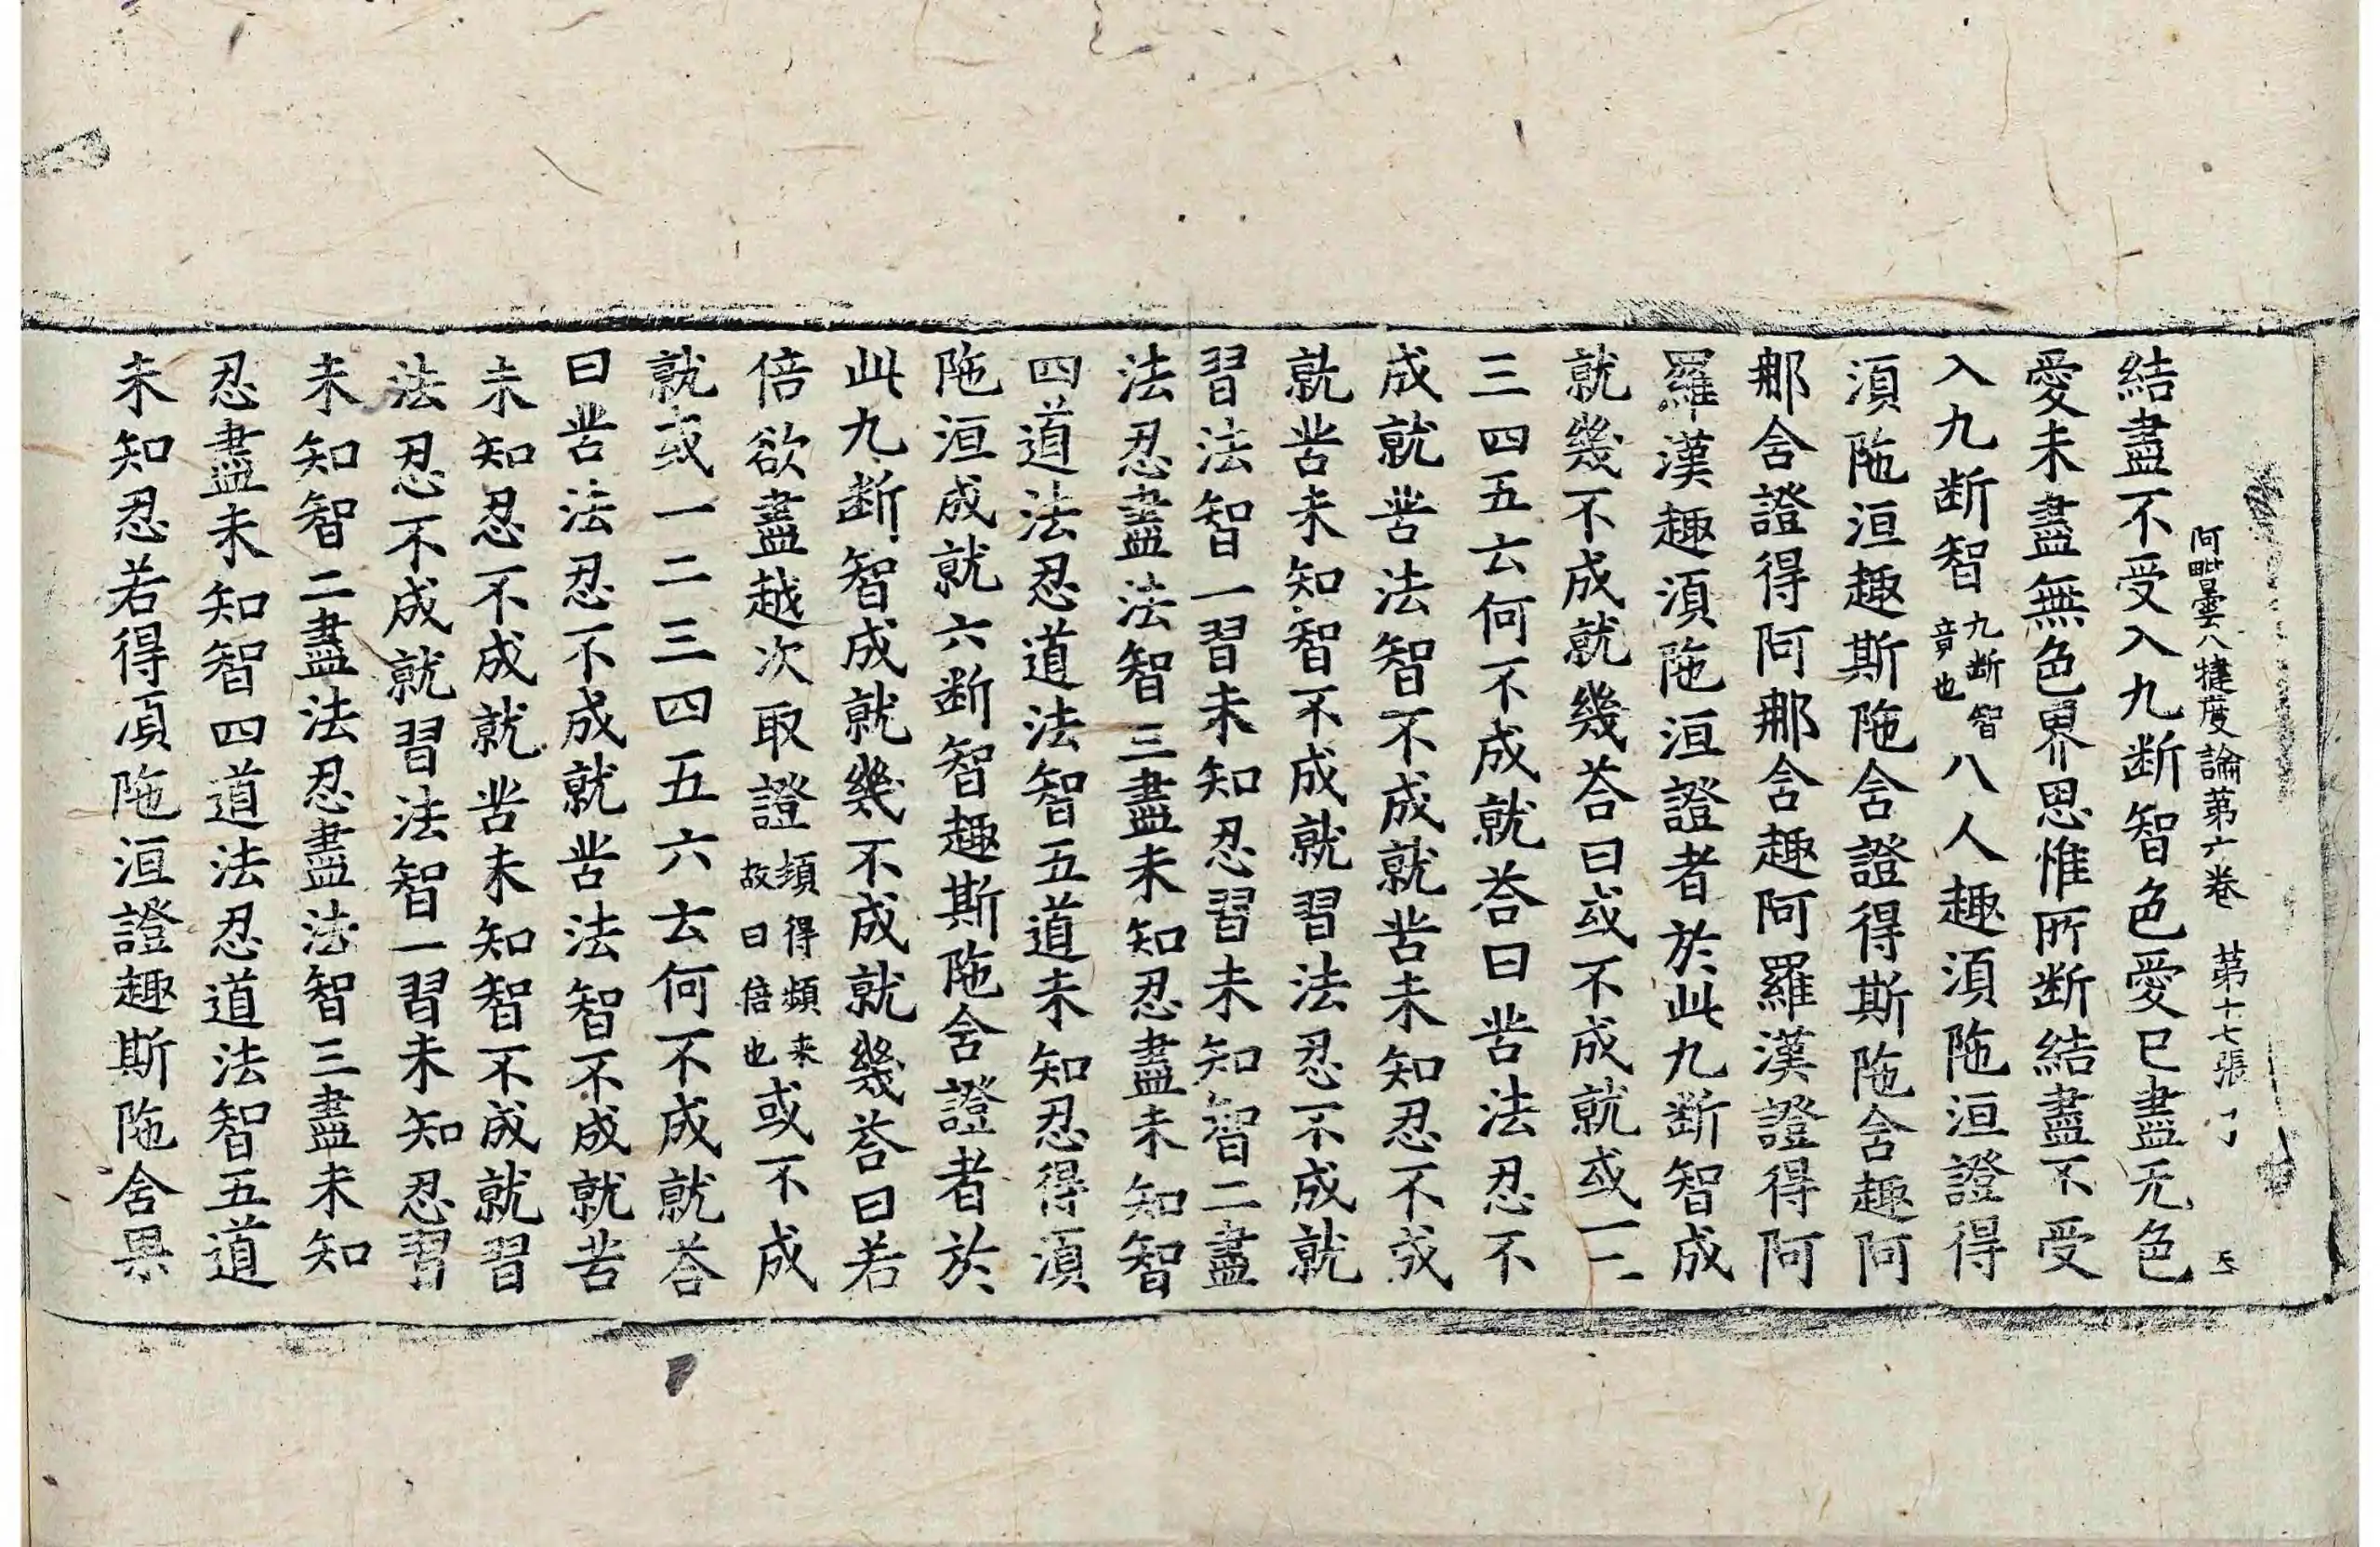 阿毗曇八犍度論第六卷 第十七張 了
結盡不受入九断智色愛已盡无色
愛未盡無色界思惟所断結盡不受
入九断智九断智竟也八人趣湏陁洹證得
湏陁洹趣斯陁含證得斯陁含趣阿
那含證得阿那含趣阿羅漢證得阿
羅漢趣湏陁洹證者於此九断智成
就幾不成就幾荅曰或不成就或一二
三四五云何不成就荅曰苦法忍不
成就苦法智不成就苦未知忍不成
就苦未知智不成就習法忍不成就
習法智一習未知忍習未知智二盡
法忍盡法智三盡未知忍盡未知智
四道法忍道法智五道未知忍得湏
陁洹成就六断智趣斯陁含證者於
此九断智成就幾不成就幾荅曰若
倍欲盡越次取證頻得頻来故曰倍也或不成
就或一二三四五六云何不成就荅
曰苦法忍不成就苦法智不成就苦
未知忍不成就苦未知智不成就習
法忍不成就習法智一習未知忍習
未知智二盡法忍盡法智三盡未知
忍盡未知智四道法忍道法智五道
未知忍若得湏陁洹證趣斯陁含果